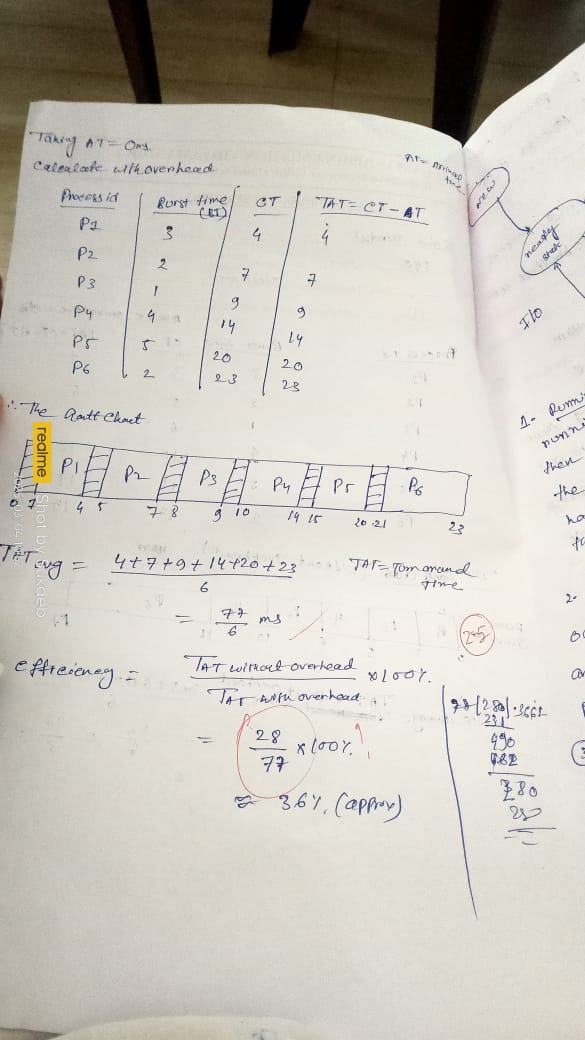 Taking AT = 0ms.
Calculate with overhead
AT = Arrival time
Process id Burst time (BT) CT TAT = CT - AT
P1 3 4 4
P2 2 7 7
P3 1 9 9
P4 4 14 14
P5 5 20 20
P6 2 23 23
∴ The Gantt Chart
P1 P2 P3 P4 P5 P6
0 1 4 5 7 8 9 10 14 15 20 21 23
TAT avg = 4+7+9+14+20+23 / 6
TAT = Turn around time
= 77/6 ms
2.5
efficiency = TAT without overhead / TAT with overhead × 100%.
= 28/77 × 100%.
≈ 36%. (approx)
280
231
490
462
280
new
ready state
I/O
1.
then
the
2.
realme Shot by